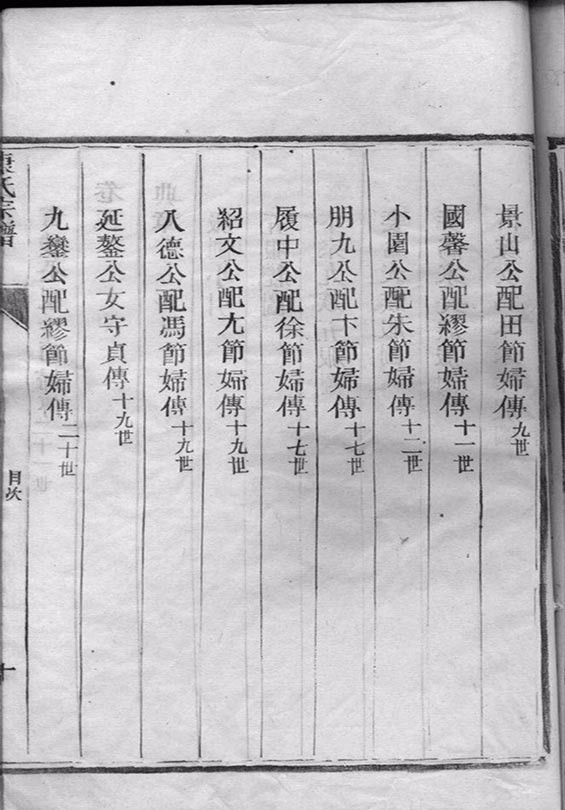 景山公配田節婦傳九世
國馨公配繆節婦傳十一世
小園公配朱節婦傳十二世
朋九公配卞節婦傳十七世
履中公配徐節婦傳十七世
紹文公配尢節婦傳十九世
八德公配馮節婦傳十九世
延鏊公女守貞傳十九世
九鑾公配繆節婦傳二十世
康氏宗譜
目次
十